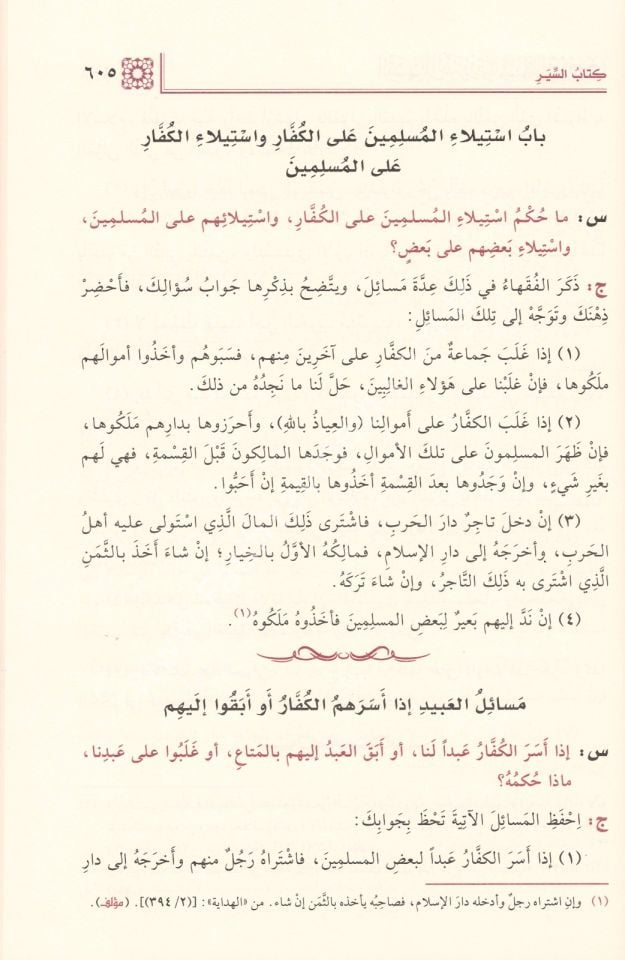 كِتابُ السِّيَرِ
٦٠٥
بابُ اسْتِيلاءِ المُسلِمِينَ عَلى الكُفَّارِ واسْتِيلاءِ الكُفَّارِ
عَلى المُسلِمِينَ
س: ما حُكْمُ اسْتِيلاءِ المُسلمِينَ على الكُفَّارِ، واسْتِيلائِهم على المُسلمِينَ،
واسْتِيلاءِ بَعضِهم على بَعضٍ؟
ج: ذَكَرَ الفُقَهاءُ في ذَلِكَ عِدَّةَ مَسائِلَ، ويتَّضِحُ بذِكْرِها جَوابُ سُؤالِكَ، فَأَحْضِرْ
ذِهْنَكَ وتَوَجَّهْ إلى تِلكَ المَسائِلِ:
(١) إذا غَلَبَ جَماعةٌ منَ الكفَّارِ على آخَرِينَ مِنهم، فسَبَوهُم وأخَذُوا أموالَهم
ملَكُوها، فإنْ غلَبْنا على هَؤلاءِ الغالِبِينَ، حَلَّ لَنا ما نَجِدُهُ من ذلكَ.
(٢) إذا غَلَبَ الكفَّارُ على أموالِنا (والعِياذُ باللهِ)، وأحرَزوها بدارِهم مَلَكُوها،
فإنْ ظَهَرَ المسلِمونَ على تلكَ الأموالِ، فوجَدَها المالِكونَ قَبْلَ القِسْمةِ، فهي لَهم
بغَيرِ شَيءٍ، وإنْ وَجَدُوها بعدَ القِسمةِ أخَذُوها بالقِيمةِ إنْ أَحَبُّوا.
(٣) إنْ دخلَ تاجِرٌ دارَ الحَربِ، فاشْتَرى ذَلِكَ المالَ الَّذِي اسْتَولى عليه أهلُ
الحَربِ، وأخرَجَهُ إلى دارِ الإسلامِ، فمالِكُهُ الأوَّلُ بالخِيارِ؛ إنْ شاءَ أَخَذَ بالثَّمَنِ
الَّذِي اشْتَرى به ذَلِكَ التَّاجرُ، وإنْ شاءَ تَرَكَهُ.
(٤) إنْ نَدَّ إليهم بَعيرٌ لِبَعضِ المسلِمينَ فأخَذُوهُ مَلَكُوهُ(١).
مَسائِلُ العَبيدِ إذا أَسَرَهمُ الكُفَّارُ أَو أَبَقُوا إلَيهِم
س: إذا أَسَرَ الكُفَّارُ عَبداً لَنا، أو أبَقَ العَبدُ إليهم بالمَتاعِ، أو غَلَبُوا على عَبدِنا،
ماذا حُكمُهُ؟
ج: اِحْفَظِ المَسائِلَ الآتِيةَ تَحْظَ بِجَوابِكَ:
(١) إذا أَسَرَ الكُفَّارُ عَبداً لبعضِ المسلمِينَ، فاشْتَراهُ رَجُلٌ منهم وأخرَجَهُ إلى دارِ
(١) وإنِ اشتراه رجلٌ وأدخله دارَ الإسلام، فصاحِبُه يأخذه بالثَّمَن إنْ شاء. من «الهداية»: [(٣٩٤/٢)]. (مؤلف).